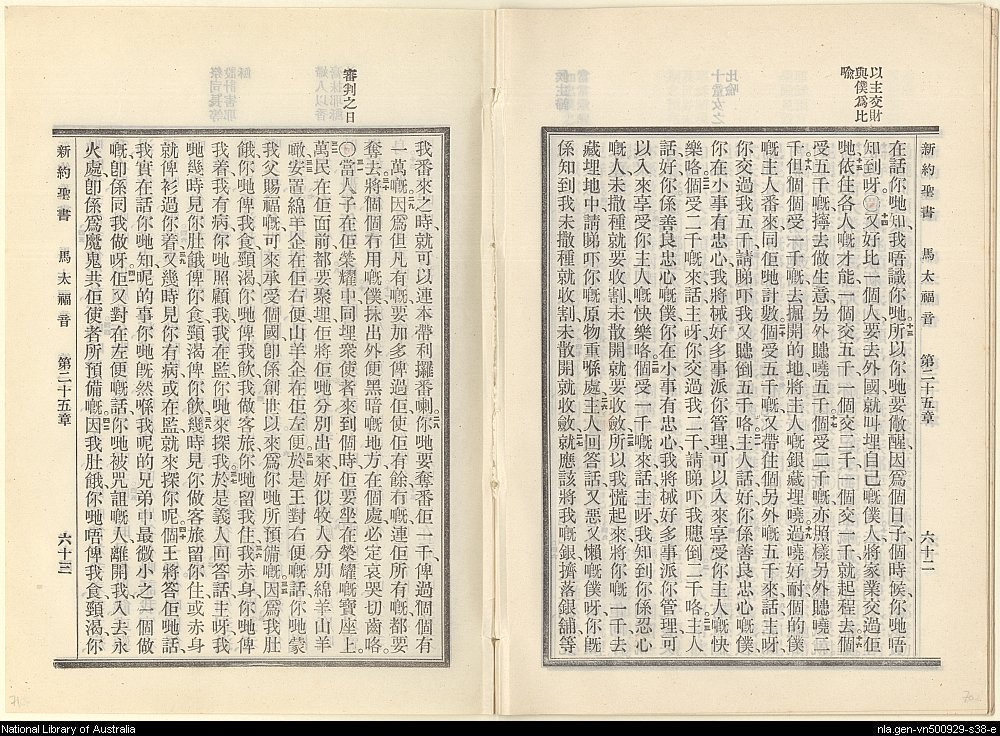 以主交財
與僕為比
喻
新約聖書 馬太福音 第二十五章 六十二
在話你哋知、我唔識你哋。十三所以你哋要儆醒、因為個日子個時候、你哋唔
知到呀。十四又好比一個人要去外國、就叫埋自己嘅僕人、將家業交過佢
哋、十五依住各人嘅才能、一個交五千、一個交二千、一個交一千、就起程去。十六個
受五千嘅、擰去做生意、另外賺曉五千。十七個受二千嘅、亦照樣另外賺曉二
千。十八但個個受一千嘅、去掘開的地、將主人嘅銀藏埋曉。十九過曉好耐、個的僕
嘅主人番來、同佢哋計數。二十個受五千嘅、又帶住個另外嘅五千來、話主呀、
你交過我五千、請睇吓我又賺倒五千咯。二一主人話、好、你係善良忠心嘅僕、
你在小事有忠心、我將械好多事派你管理、可以入來享受你主人嘅快
樂咯。二二個受二千嘅來、話主呀、你交過我二千、請睇吓我賺倒二千咯。二三主人
話、好、你係善良忠心嘅僕、你在小事有忠心、我將械好多事派你管理、可
以入來享受你主人嘅快樂咯。二四個受一千嘅來、話主呀、我知到你係忍心
嘅人、未撒種就要收割、未散開就要收斂、二五所以我慌起來、將你嘅一千去
藏埋地中、請睇吓你嘅原物重喺處。二六主人回答話、又惡又懶嘅僕呀、你既
係知到我未撒種就收割、未散開就收斂、二七就應該將我嘅銀擠落銀舖、等
審判之日
我番來之時、就可以連本帶利攞番喇。二八你哋要奪番佢一千、俾過個個有
一萬嘅。二九因為但凡有嘅、要加多俾過佢、使佢有餘、冇嘅連佢所有嘅都要
奪去。三十將個個冇用嘅僕、抹出外便黑暗嘅地方、在個處必定哀哭切齒咯。
三一當人子在佢榮耀中、同埋衆使者來到、個時佢要坐在榮耀嘅寶座上、
三二萬民在佢面前、都要聚埋、佢將佢哋分別出來、好似牧人分別綿羊山羊
噉、三三安置綿羊企在佢右便、山羊企在佢左便。三四於是王對右便嘅話、你哋蒙
我父賜福嘅、可來承受個國、卽係創世以來、爲你哋所預備嘅。三五因爲我肚
餓、你哋俾我食、頸渴、你哋俾我飲、我做客旅、你哋留我住、三六我赤身、你哋俾
我着、我有病、你哋照顧我、我在監、你哋來探我。三七於是義人回答話、主呀、我
哋幾時見你肚餓俾你食、頸渴俾你飲、三八幾時見你做客旅留你住、或赤身
就俾衫過你着、三九又幾時見你有病、或在監、就來探你呢。四十個王將答佢哋話、
我實在話你哋知、呢的事你哋既然喺我呢的兄弟中、最微小之一個做
嘅、卽係同我做呀。四一佢又對在左便嘅話、你哋被咒詛嘅人、離開我、入去永
火處、卽係爲魔鬼共佢使者所預備嘅。四二因我肚餓、你哋唔俾我食、頸渴、你
新約聖書 馬太福音 第二十五章 六十三
National Library of Australia
nla.gen-vn500929-s38-e